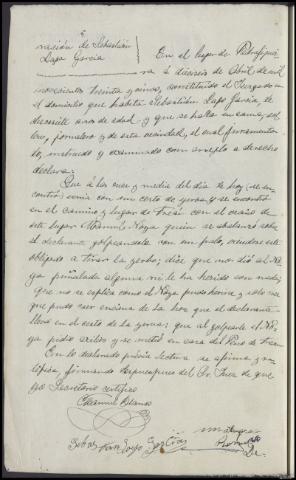 ración de Sebastián
Lapo García
En el lugar de Pedrafigui-
ra á dieciseis de Abril de mil
novecientos treinta y cinco, constituido el Juzgado en
el domicilio que habita Sebastián Lapo García, de
diecisiete anos de edad y que se halla en cama, sol-
tero, jornalero y de esta vecindad, el cual juramenta-
do, instruido y examinado con arreglo a derecho
declara:
Que á las once y media del dia de hoy se en-
contró venia con un cesto de yerba y se encontró
en el camino y lugar de con el vecino de
este Manuel Noya quien se abalanzó sobre
el declarante golpeandole con un palo, viendose este
obligado a tirar la yerba; dice que no dió al No-
ya puñalada alguna ni le ha herido con nada;
que no se explica como el Noya pudo herirse, y solo es
que pudo caer encima de la hoz que el declarante
lleva en el cesto de la yerba; que al golpearle el No-
ya pidio auxilio y se metió en casa del de
En lo declarado prévia lectura se afirma y ra-
tifica, firmando despues del Sr. Juez de que
yo Secretario certifico
Manuel Blanco
Sebastian Lapo García